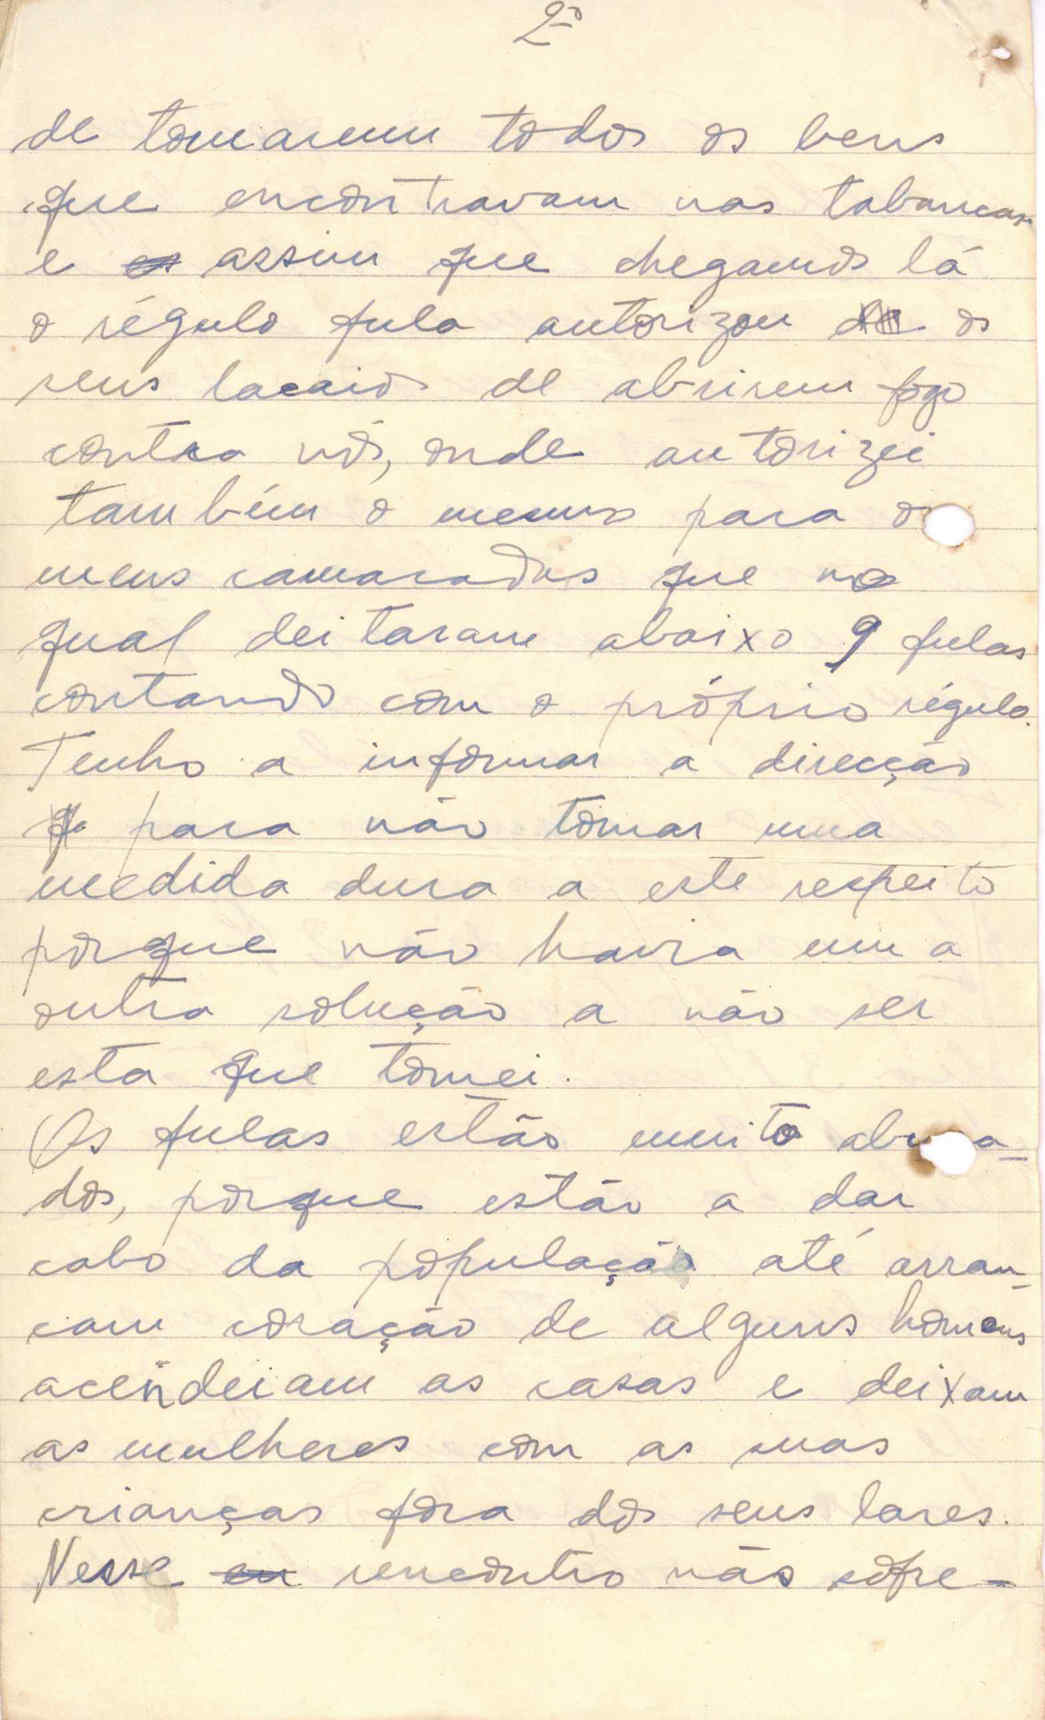 2º
de tomarem todos os bens
que encontravam nas tabancas
e assim que chegamos lá
o régulo fula autorizou os
seus lacaios de abrirem fogo
contra nós, onde autorizei
também o mesmo para os
meus camaradas que no
qual deitaram abaixo 9 fulas
contando com o próprio régulo.
Tenho a informar a direcção
para não tomar uma
medida dura a este respeito
porque não havia uma
outra solução a não ser
esta que tomei.
Os fulas estão muito abusa-
dos, porque estão a dar
cabo da população até arran-
cam coração de alguns homens
acendeiam as casas e deixam
as mulheres com as suas
crianças fora dos seus lares.
Nesse rencontro não sofre-